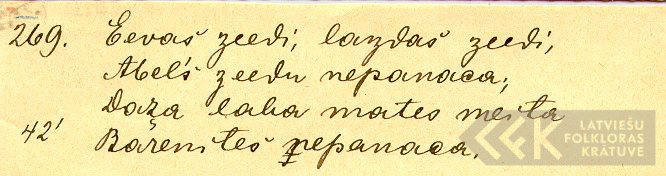 269. Eevaš zeedi, lazdaš zeedi,
Abel's zeedu nepanaca;
Daža laba mates meita
42' Bāzenites nepanaca.
LATVIEŠU
FOLKLORAS
KRĀTUVE